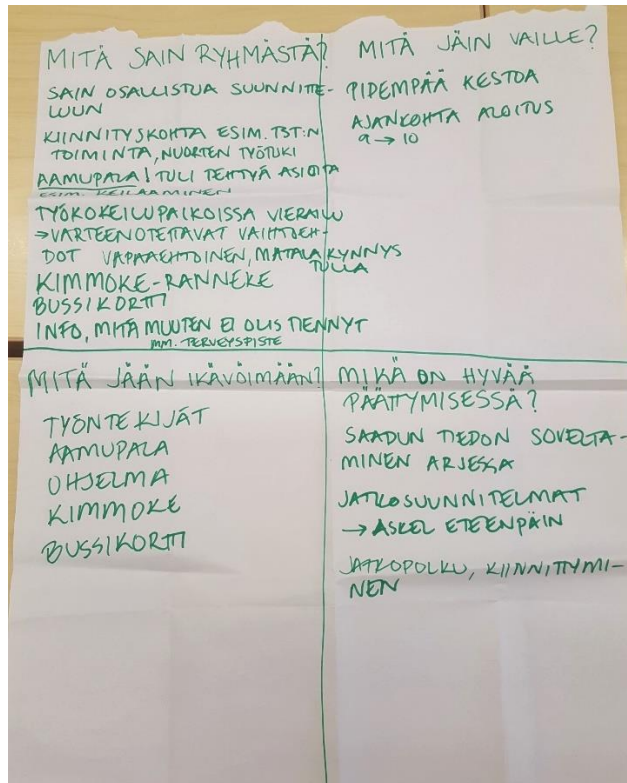 MITÄ SAIN RYHMÄSTÄ?
SAIN OSALLISTUA SUUNNITTE-
LUUN
KIINNITYSKOHTA ESIM. TST:N
TOIMINTA, NUORTEN TYÖTUKI
AAMUPALA! TULI TEHTYÄ ASIOITA
ESIM. KEILAAMINEN
TYÖKOKEILUPAIKOISSA VIERAILU
→ VARTEENOTETTAVAT VAIHTOEH-
DOT VAPAAEHTOINEN, MATALA KYNNYS
TULLA
KIMMOKE-RANNEKE
BUSSIKORTTI
INFO, MITÄ MUUTEN EI OLIS TIENNYT
MM. TERVEYSPISTE
MITÄ JÄIN VAILLE?
PIDEMPÄÄ KESTOA
AJANKOHTA ALOITUS
9 → 10
MITÄ JÄÄN IKÄVÖIMÄÄN?
TYÖNTEKIJÄT
AAMUPALA
OHJELMA
KIMMOKE
BUSSIKORTTI
MIKÄ ON HYVÄÄ
PÄÄTTYMISESSÄ?
SAADUN TIEDON SOVELTA-
MINEN ARJESSA
JATKOSUUNNITELMAT
→ ASKEL ETEENPÄIN
JATKOPOLKU, KIINNITTYMI-
NEN